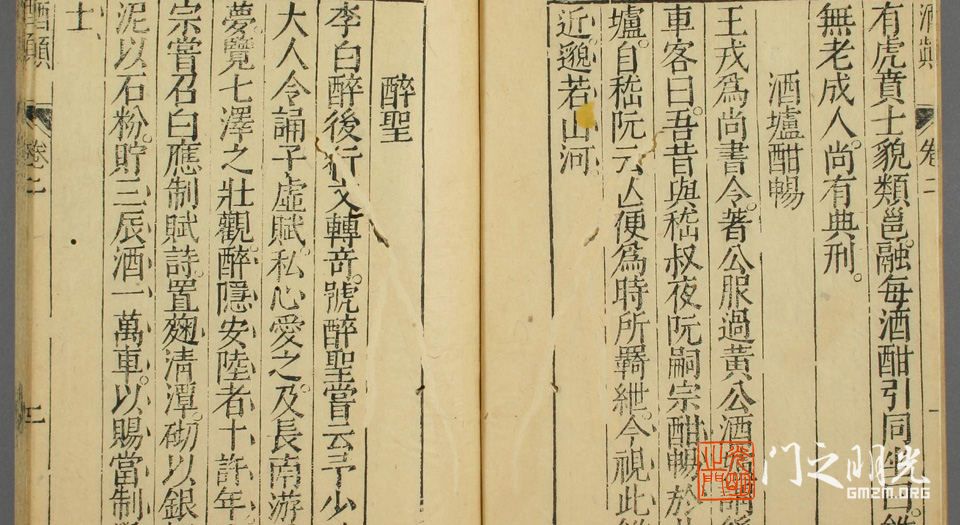 酒顛 卷二 一
有虎賁士貌類邕。融每酒酣引同坐曰。
無老成人。尚有典刑。
酒壚酣暢
王戎爲尚書令。著公服過黃公酒壚謂後
車客曰。吾昔與嵇叔夜阮嗣宗酣暢於
壚。自嵇阮云亾便爲時所羈紲。今視此
近。邈若山河。
醉聖
李白醉後行文轉奇。號醉聖嘗云予少
大人令誦子虛賦。私心愛之。及長南游
夢。覽七澤之壯觀。醉隱安陸者十許年。
宗嘗召白應制賦詩。置麴清潭。砌以銀
泥以石粉。貯三辰酒一萬車。以賜當制
士。
酒顛 卷二 二
门之明光
GMZM.ORG